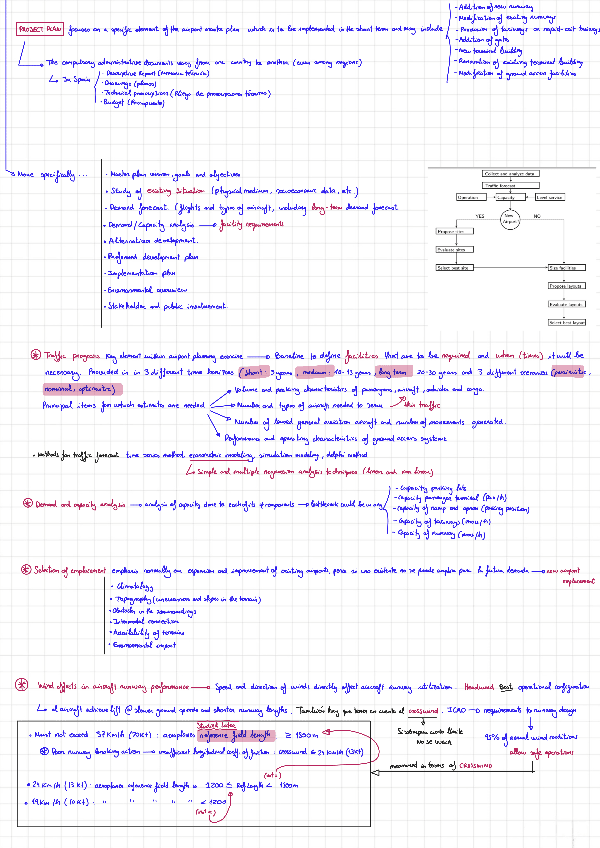 PROJECT PLAN focuses on a specific element of the airport master plan which is to be implemented in the short term and may include
- Addition of new runway
- Modification of existing runways
- Provision of taxiways or rapid-exit taxiways
- Addition of gate
- New terminal building
- Renovation of existing terminal building
- Modification of ground access facilities
The compulsory administrative documents vary from one country to another (even among regions)
In Spain
· Descriptive Report (Memoria técnica)
· Drawings (planos)
· Technical prescriptions (Pliego de prescripciones técnicas)
· Budget (Presupuesto)
More specifically ...
· Master plan vision, goals and objectives
· Study of existing situation (physical medium, socioeconomic data, etc.)
· Demand forecast (flights and types of aircraft, including long-term demand forecast
· Demand/Capacity analysis → facility requirements
· Alternatives development.
· Preferred development plan
· Implementation plan
· Environmental overview
· Stakeholder and public involvement.
Collect and analyze data
Traffic forecast
Operation
Capacity
Level service
YES
New Airport
NO
Propose sites
Evaluate sites
Select best site
Size facilities
Propose layouts
Evaluate layouts
Select best layout
Traffic prognosis Key element within airport planning exercise → Baseline to define facilities that are to be required and when (times) it will be
necessary. Provided in in 3 different time horizons (short: 5 years, medium: 10-15 years, long term 20-30 years and 3 different scenarios (pessimistic,
nominal, optimistic)
Principal items for which estimates are needed
Volume and peaking characteristics of passengers, aircraft, vehicles and cargo.
Number and types of aircraft needed to serve this traffic
Number of based general aviation aircraft and number of movements generated.
Performance and operating characteristics of ground access systems
· Methods for traffic forecast time series method, econometric modeling, simulation modeling, delphi method
Simple and multiple regression analysis techniques (linear and non linear)
Demand and capacity analysis → analysis of capacity done to each of its components → bottleneck could be in any
- Capacity parking lots
- Capacity passenger terminal (pax/h)
- Capacity of ramp and apron (parking position)
- Capacity of taxiways (mov/h)
- Capacity of runway (mov/h)
Selection of emplacement emphasis normally on expansion and improvement of existing airports, pero si uno existente no se puede ampliar para la future demanda → new airport
emplacement
· Climatology
· Topography (unevenness and slopes in the terrain)
· Obstacles in the surroundings
· Intermodal connection
· Availability of terrains
· Environmental impact
Wind effects in aircraft runway performance → Speed and direction of winds directly affect aircraft runway utilization. Headwind Best operational configuration
el aircraft achieve lift @ slower ground speeds and shorter runway lengths. También hay que tener en cuenta el crosswind. ICAO → requirements to runway design
Si sobrepasa cierto límite
No se usará
95% of annual wind conditions
allow safe operations
measured in terms of CROSSWIND
· Must not exceed 37 Km/h (20kt) : aeroplanes reference field length ≥ 1500m
Poor runway braking action → insufficient longitudinal coeff of friction : crosswind ≤ 24 Km/h (13kt)
· 24 Km/h (13 kt) : aeroplanes reference field length is 1200 ≤ Ref length < 1500m
· 19 Km/h (10 kt) : " " " " " < 1200